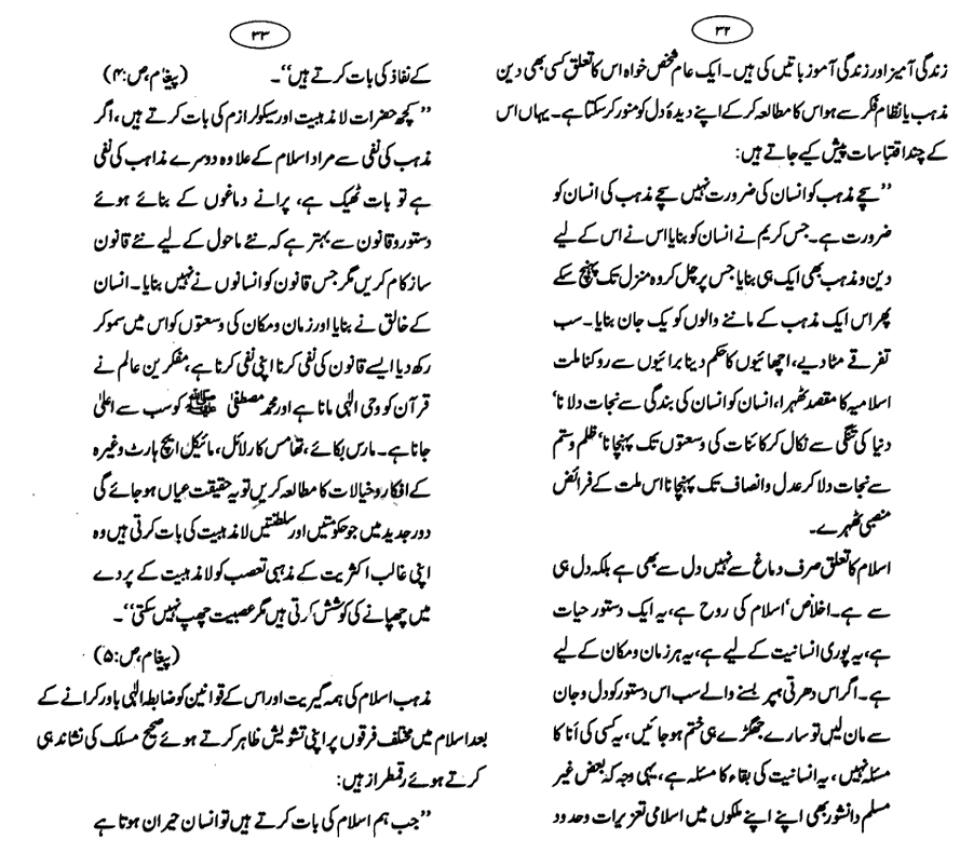 ۳۲
زندگی آمیز اور زندگی آموز باتیں کی ہیں۔ ایک عام شخص خواہ اس کا تعلق کسی بھی دین
مذہب یا نظام فکر سے ہو اس کا مطالعہ کر کے اپنے دیدۂ دل کو منور کر سکتا ہے۔ یہاں اس
کے چند اقتباسات پیش کیے جاتے ہیں:
’’سچے مذہب کو انسان کی ضرورت نہیں سچے مذہب کی انسان کو
ضرورت ہے۔ جس کریم نے انسان کو بنایا اس نے اس کے لیے
دین و مذہب بھی ایک ہی بنایا جس پر چل کر وہ منزل تک پہنچ سکے
پھر اس ایک مذہب کے ماننے والوں کو یک جان بنایا۔ سب
تفرقے مٹا دیے، اچھائیوں کا حکم دینا برائیوں سے روکنا ملت
اسلامیہ کا مقصد ٹھہرا، انسان کو انسان کی بندگی سے نجات دلانا‘
دنیا کی تنگی سے نکال کر کائنات کی وسعتوں تک پہنچانا‘ ظلم و ستم
سے نجات دلا کر عدل و انصاف تک پہنچانا اس ملت کے فرائض
منصبی ٹھہرے۔
اسلام کا تعلق صرف دماغ سے نہیں دل سے بھی ہے بلکہ دل ہی
سے ہے۔ اخلاص‘ اسلام کی روح ہے، یہ ایک دستور حیات
ہے، یہ پوری انسانیت کے لیے ہے، یہ ہر زمان و مکان کے لیے
ہے۔ اگر اس دھرتی پر بسنے والے سب اس دستور کو دل و جان
سے مان لیں تو سارے جھگڑے ہی ختم ہو جائیں، یہ کسی کی اَنا کا
مسئلہ نہیں، یہ انسانیت کی بقاء کا مسئلہ ہے، یہی وجہ کہ بعض غیر
مسلم دانشور بھی اپنے اپنے ملکوں میں اسلامی تعزیرات و حدود
۳۳
کے نفاذ کی بات کرتے ہیں‘‘۔ (پیغام، ص:۴)
’’کچھ حضرات لا مذہبیت اور سیکولرازم کی بات کرتے ہیں، اگر
مذہب کی نفی سے مراد اسلام کے علاوہ دوسرے مذاہب کی نفی
ہے تو بات ٹھیک ہے، پرانے دماغوں کے بنائے ہوئے
دستور و قانون سے بہتر ہے کہ نئے ماحول کے لیے نئے قانون
ساز کام کریں مگر جس قانون کو انسانوں نے نہیں بنایا۔ انسان
کے خالق نے بنایا اور زمان و مکان کی وسعتوں کو اس میں سمو کر
رکھ دیا ایسے قانون کی نفی کرنا اپنی نفی کرنا ہے، مفکرین عالم نے
قرآن کو وحی الٰہی مانا ہے اور محمد مصطفیٰ ﷺ کو سب سے اعلیٰ
جانا ہے۔ مارس بکائے، تھامس کارلائل، مائیکل ایچ ہارٹ وغیرہ
کے افکار و خیالات کا مطالعہ کریں تو یہ حقیقت عیاں ہو جائے گی
دور جدید میں جو حکومتیں اور سلطنتیں لا مذہبیت کی بات کرتی ہیں وہ
اپنی غالب اکثریت کے مذہبی تعصب کو لا مذہبیت کے پردے
میں چھپانے کی کوشش کرتی ہیں مگر عصبیت چھپ نہیں سکتی‘‘۔
(پیغام، ص:۵)
مذہب اسلام کی ہمہ گیریت اور اس کے قوانین کو ضابطہ الٰہی باور کرانے کے
بعد اسلام میں مختلف فرقوں پر اپنی تشویش ظاہر کرتے ہوئے صحیح مسلک کی نشاندہی
کرتے ہوئے رقمطراز ہیں:
’’جب ہم اسلام کی بات کرتے ہیں تو انسان حیران ہوتا ہے